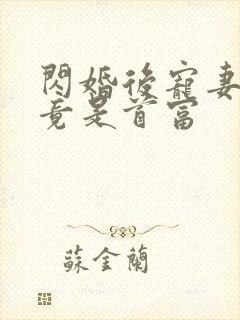 閃婚後寵妻
竟是首富
蘇金蘭